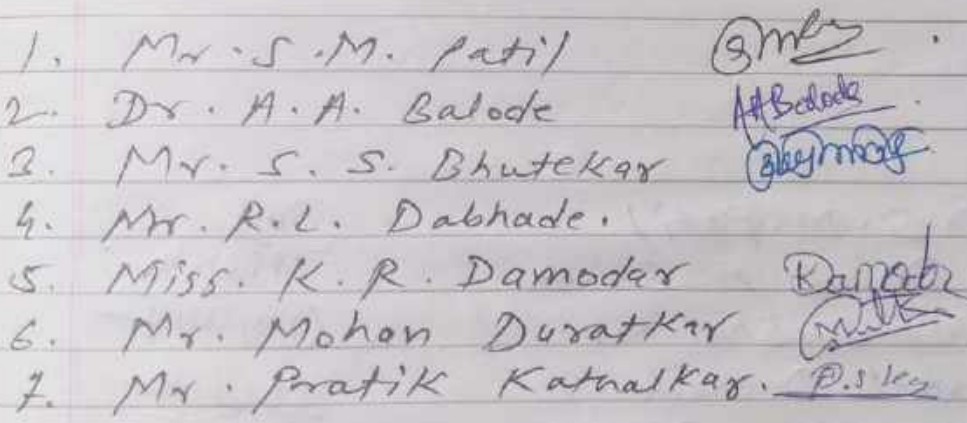 1. Mr. S. M. Patil
2. Dr. A. A. Balode AABalode
3. Mr. S. S. Bhutekar
4. Mr. R. L. Dabhade.
5. Miss. K. R. Damodar
6. Mr. Mohan Duratkar
7. Mr. Pratik Kathalkar.